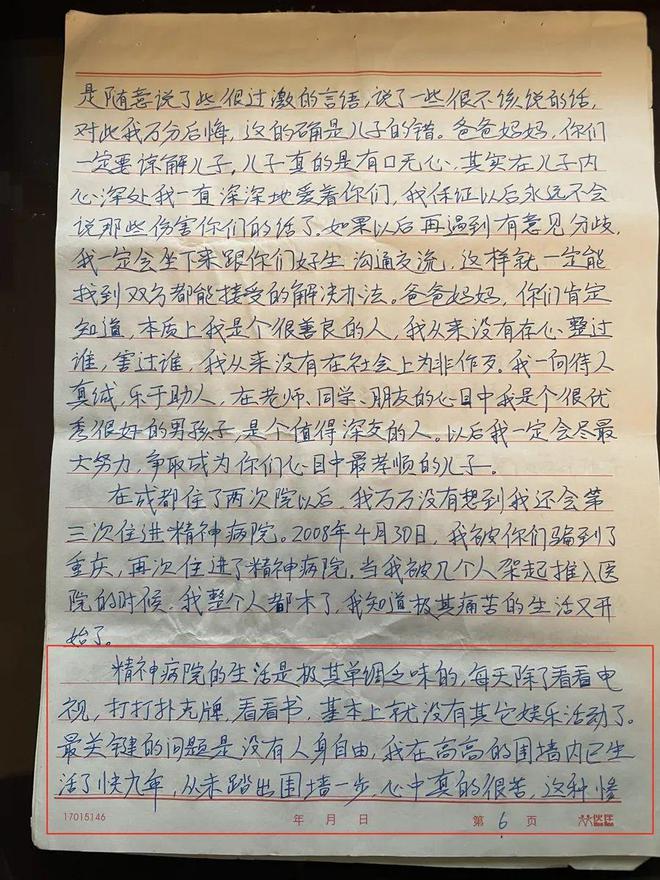 是随意说了些很过激的言语，说了一些很不该说的话，
对此我万分后悔，这的确是儿子的错。爸爸妈妈，你们
一定要谅解儿子，儿子真的是有口无心，其实在儿子内
心深处我一直深深地爱着你们，我保证以后永远不会
说那些伤害你们的话了。如果以后再遇到有意见分歧，
我一定会坐下来跟你们好生沟通交流，这样就一定能
找到双方都能接受的解决办法。爸爸妈妈，你们肯定
知道，本质上我是个很善良的人，我从来没有存心整过
谁，害过谁，我从来没有在社会上为非作歹。我一向待人
真诚，乐于助人，在老师、同学、朋友的心目中我是个很优
秀很好的男孩子，是个值得深交的人。以后我一定会尽最
大努力，争取成为你们心目中最孝顺的儿子。
在成都住了两次院以后，我万万没有想到我还会第
三次住进精神病院。2008年4月30日，我被你们骗到了
重庆，再次住进了精神病院。当我被几个人架起推入医
院的时候，我整个人都木了，我知道极其痛苦的生活又开
始了。
精神病院的生活是极其单调乏味的，每天除了看看电
视，打打扑克牌，看看书，基本上就没有其它娱乐活动了。
最关键的问题是没有人身自由，我在高高的围墙内已生
活了快九年，从未踏出围墙一步，心中真的很苦，这种惨
17015146 年 月 日 第 6 页